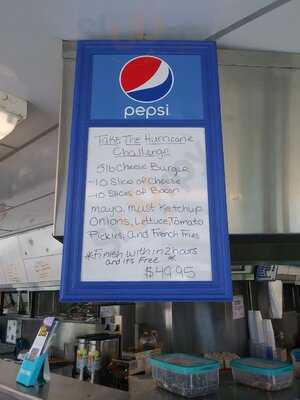 pepsi
Take The Hurricane
Challenge
5lb Cheese Burger
-10 Slice of Cheese
-10 Slices of Bacon
Mayo, Must Ketchup
Onions, Lettuce, Tomato
Pickles, and French Fries
*Finish within 2 hours
and it's Free *
$49.95